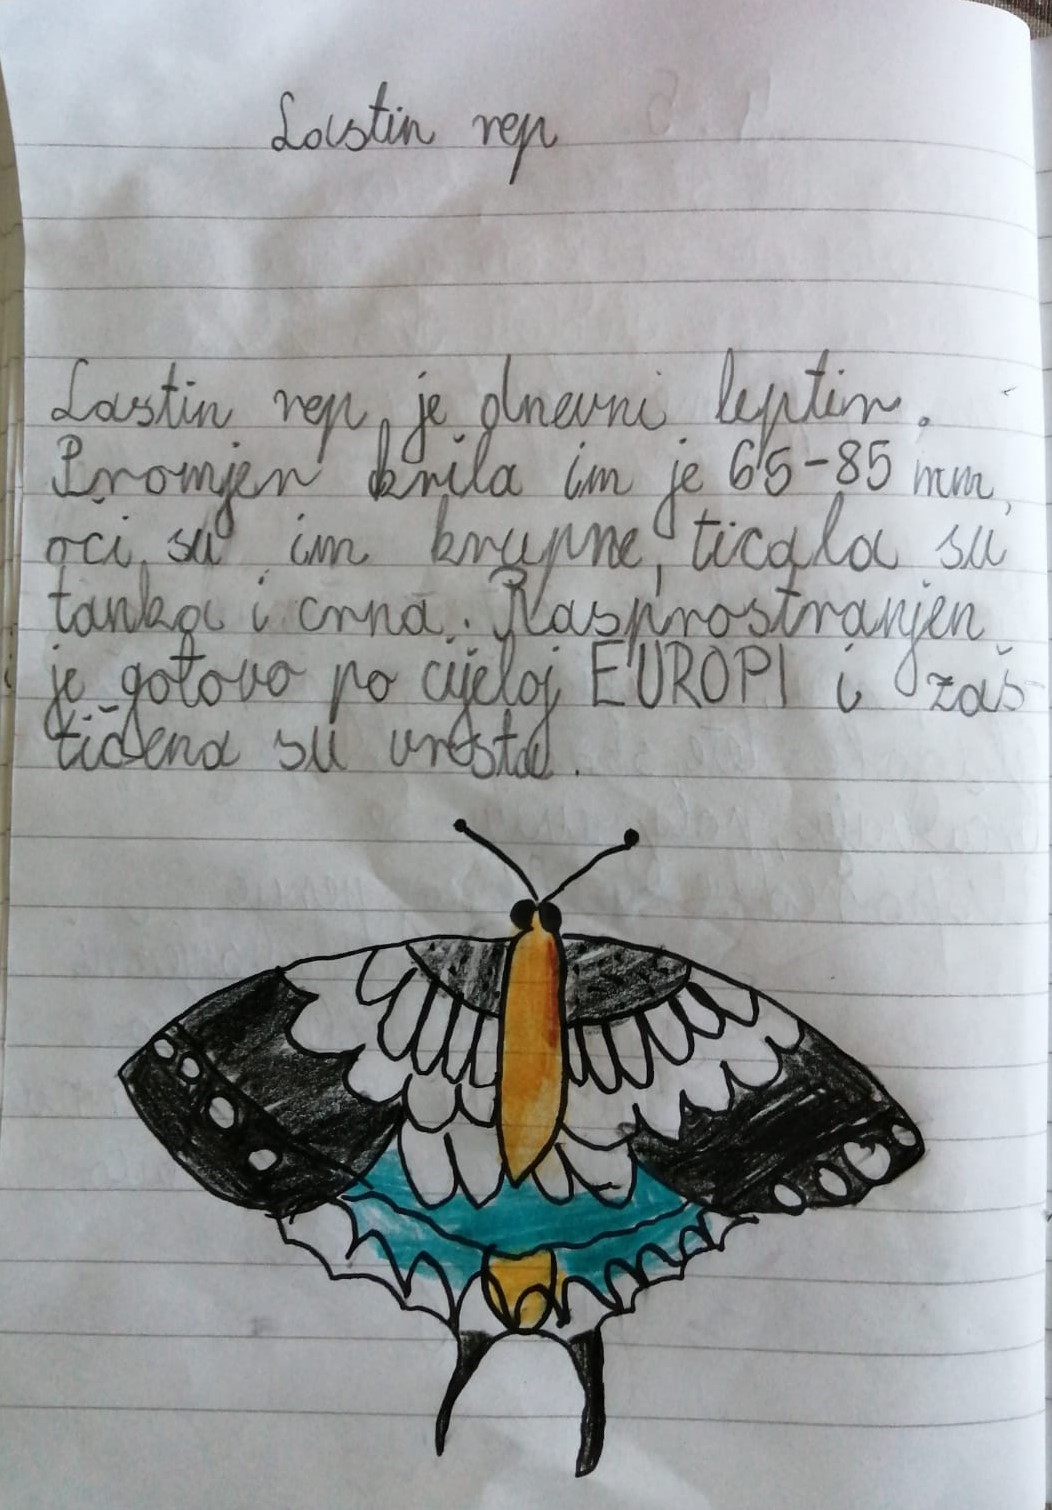 Lastin rep
Lastin rep je dnevni leptir.
Promjer krila im je 65-85 mm,
oči su im krupne, ticala su
tanka i crna. Rasprostranjen
je gotovo po cijeloj EUROPI i zaš-
tićena su vrsta.